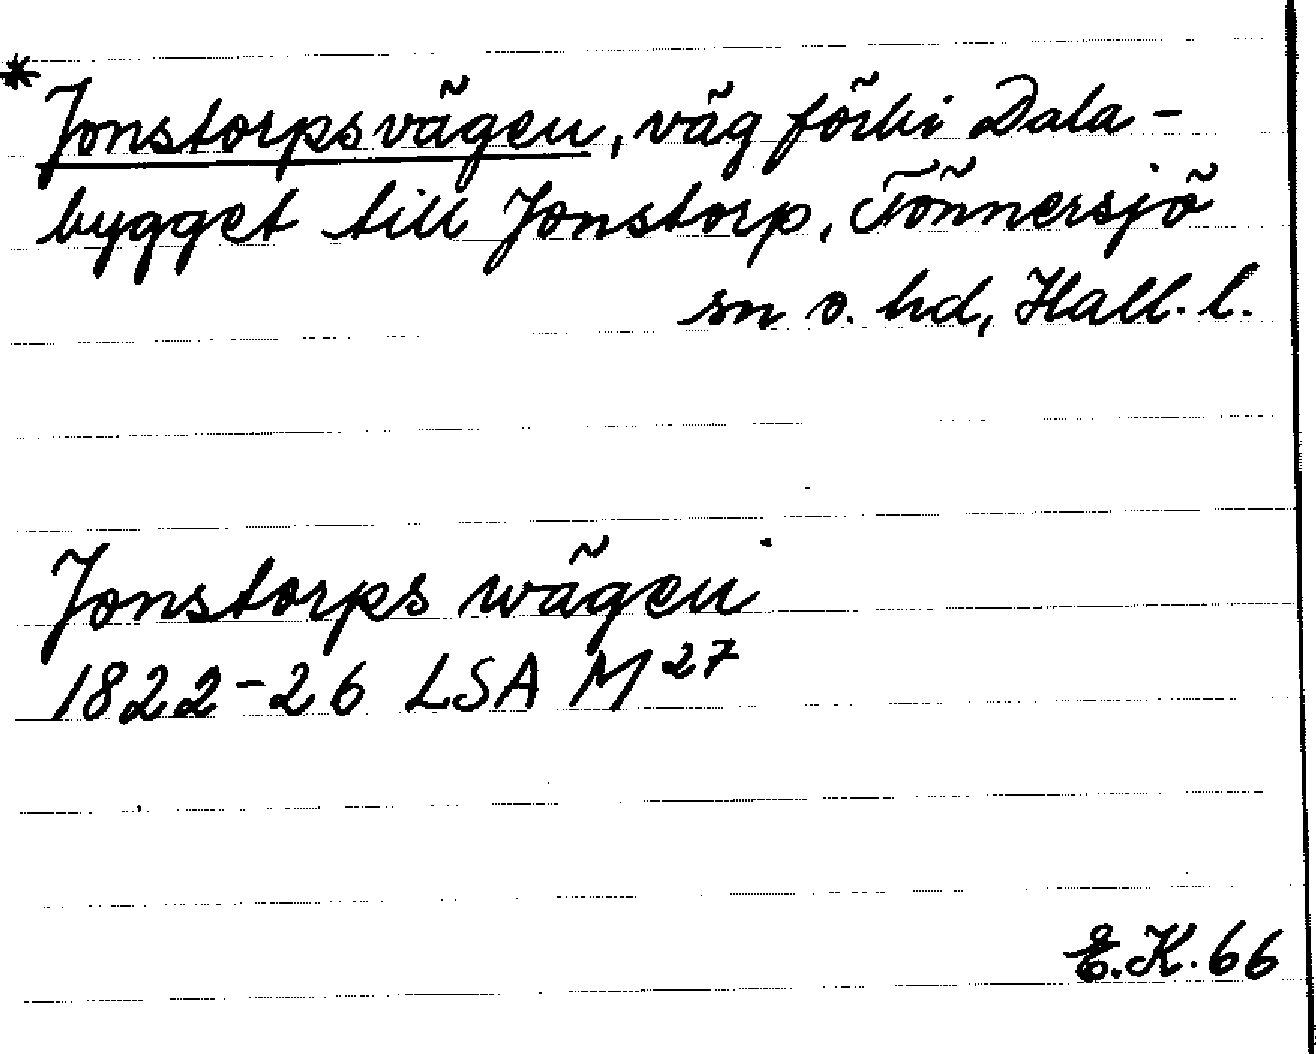 * Jonstorpsvägen, väg förbi Dala-
bygget till Jonstorp, Tönnersjö
sn o. hd, Hall. l.
Jonstorps wägen
1822-26 LSA M27
E.K. 66